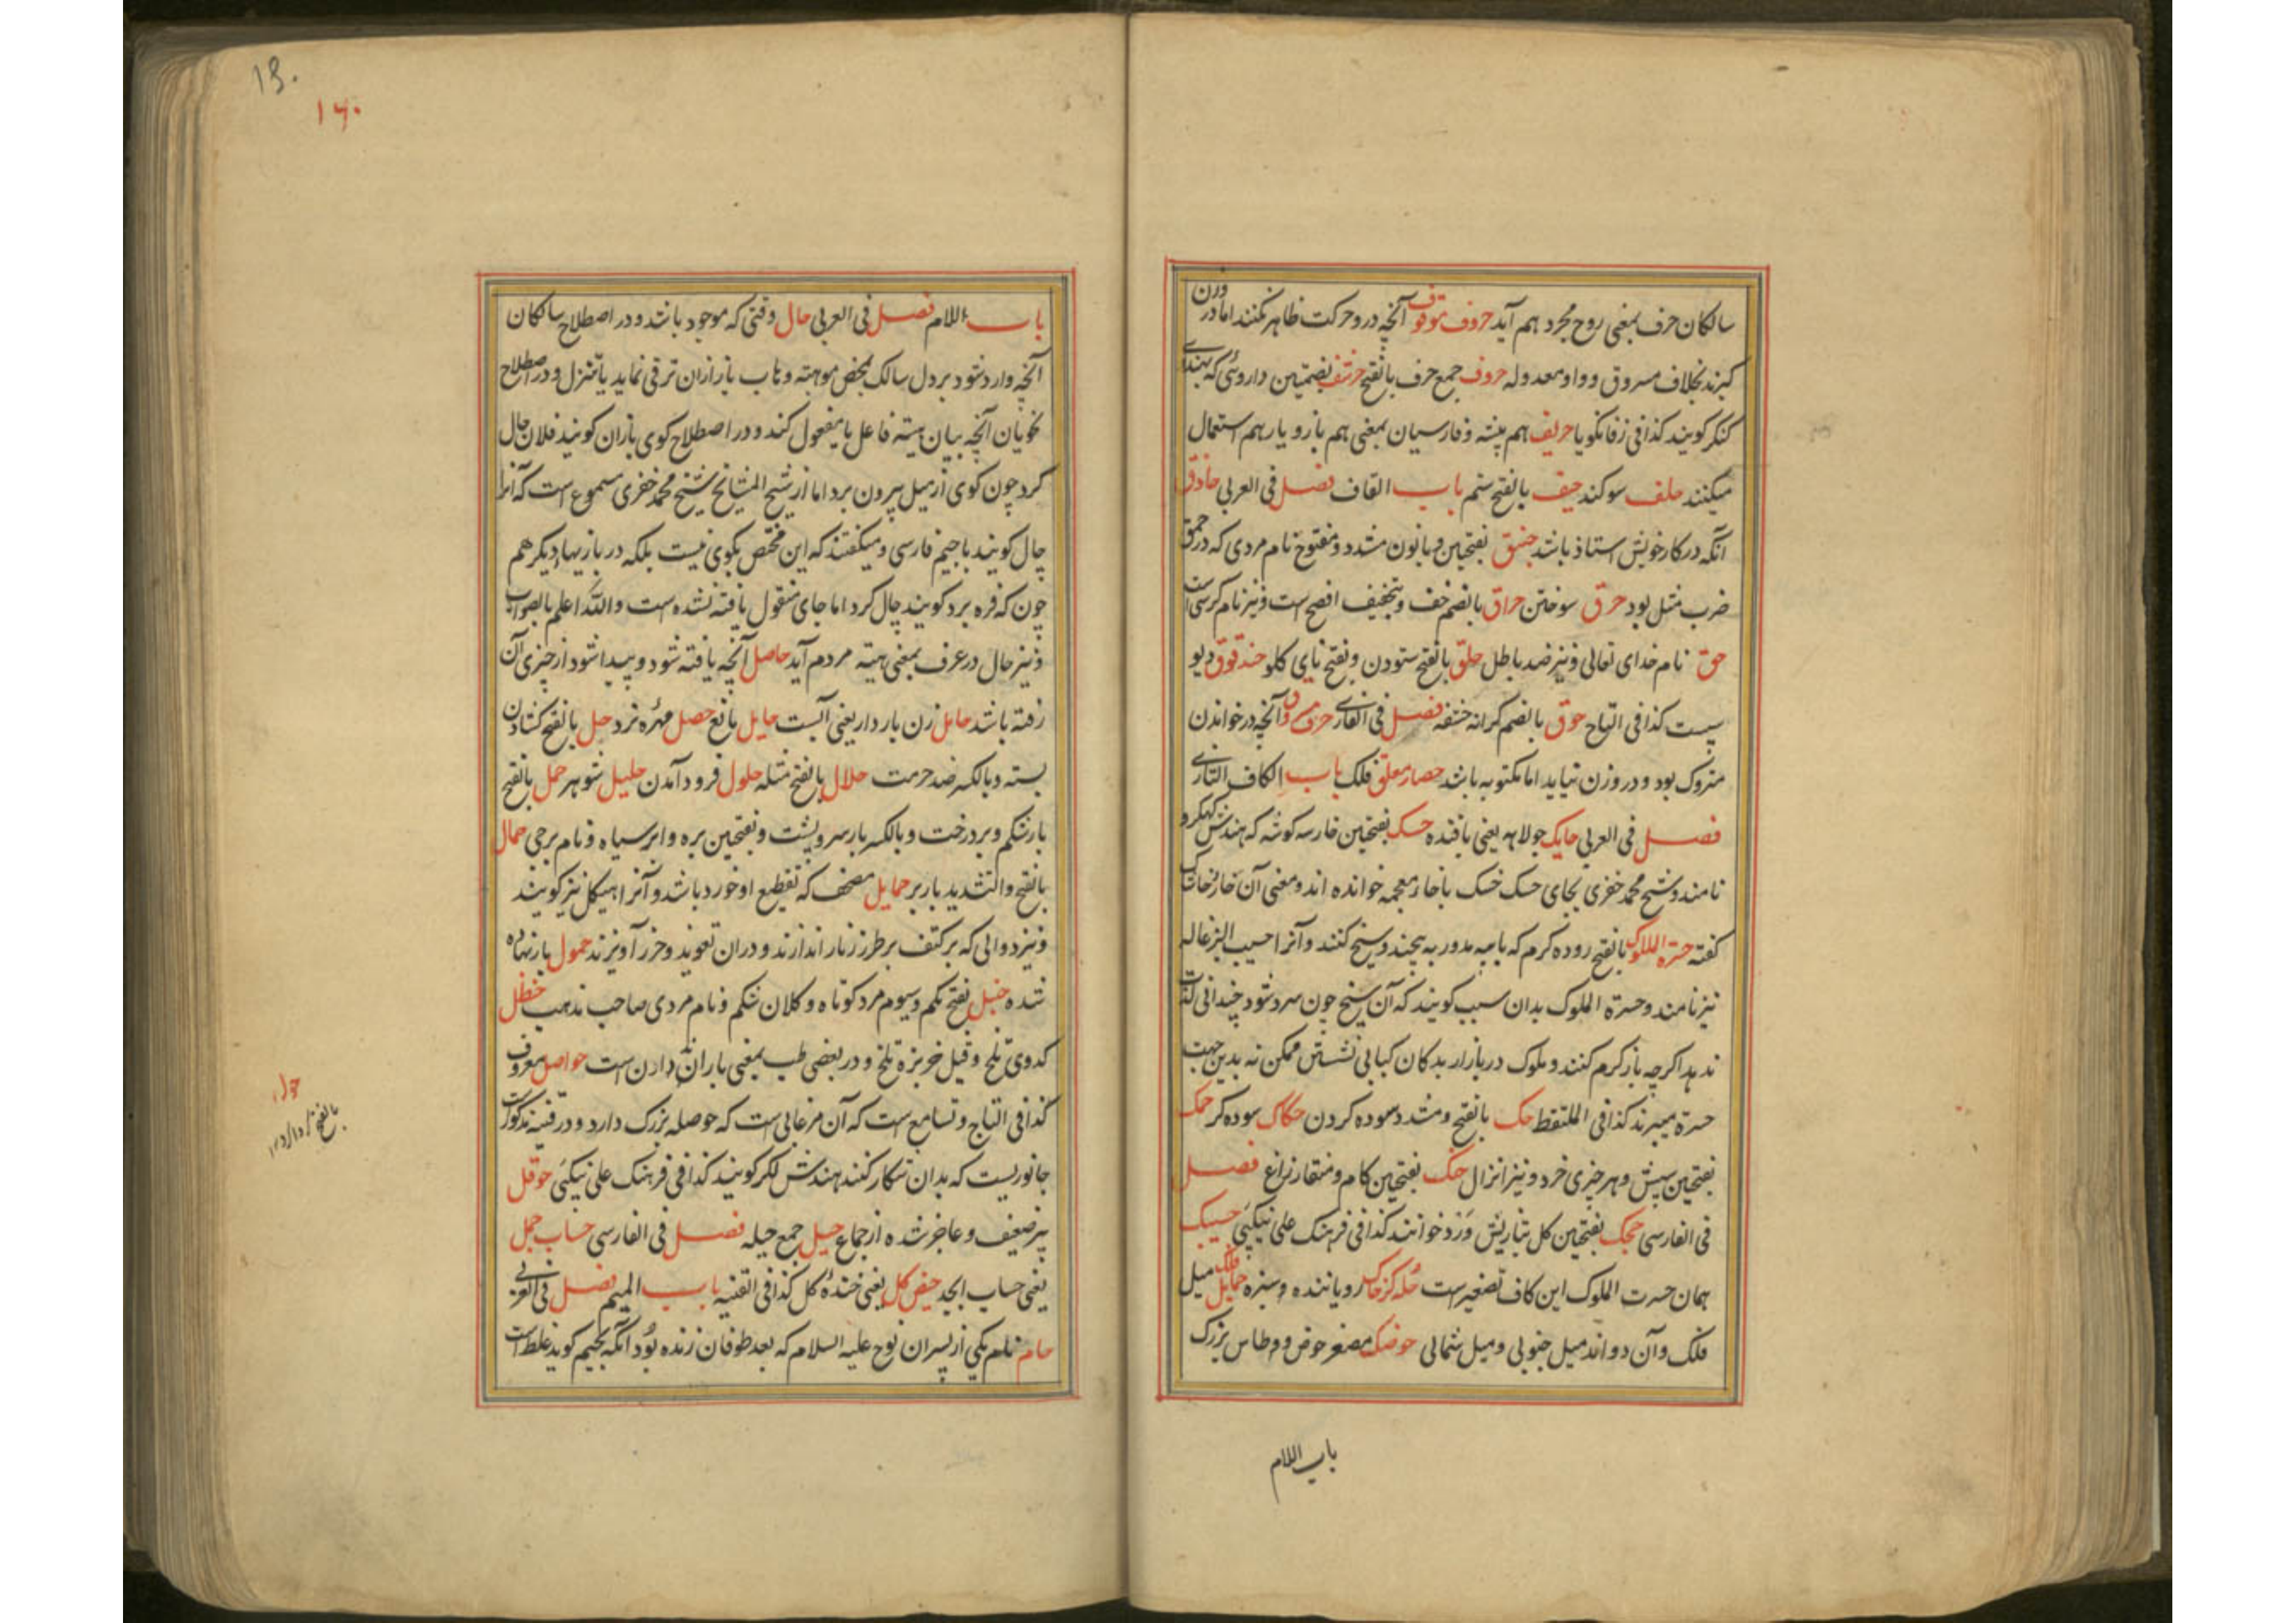 سالکان حرف بمعنی روح مجرد هم آید حروف موقوف آنچه درو حرکت ظاهر نکنند اما در وزن
گیرند بخلاف مسروق و واو معدوله حروف جمع حرف بالفتح حرشف بضمتین داروئی که بهندی
کنکر کویند کذا فی زفانکویا حریف هم پیشه و فارسیان بمعنی هم بازو یار هم استعمال
میکنند حلف سوکند حیف بالفتح ستم باب القاف فصل فی العربی حاذق
آنکه در کار خویش استاذ باشد حبنق بفتحتین و با نون مشدد و مفتوح نام مردی که در حمق
ضرب مثل بود حرق سوختن حراق بالضم خف و بتخفیف افصح است و نیز نام کرسی است
حق نام خدای تعالی و نیز ضد باطل حلق بالفتح ستودن و بفتح نای کلو حندقوق دیو
سپست کذا فی التاج حوق بالضم کرانه حشفه فصل فی الفارسی حرف مسروق آنچه در خواندن
متروک بود و در وزن نیاید اما مکتوبه باشد حصار معلق فلک باب الکاف التازی
فصل فی العربی حایک جولاهه یعنی بافنده حسک بفتحتین خار سه کوشه که هندش کهکرو
نامند و شیخ محمد خفری بجای حسک خسک با خاء معجمه خوانده اند و معنی آن خار
کفته حسرة الملوک بالفتح روده کرم که با پیه مدور به پیچند و سیخ کنند و آنرا حسیب الزغاله
نیز نامند و حسرة الملوک بدان سبب کویند که آن سیخ چون سرد شود چندانی لذت
ندهد اکرچه باز کرم کنند و ملوک در بازار بدکان کبابی نشستن ممکن نه بدین جهت
حسرة میبرند کذا فی الملتقط حک بالفتح و مشدد سوده کردن حکاک سوده کر حمک
بفتحتین سپش و هر چیزی خرد و نیز انزال حنک بفتحتین کام و منقار زاغ فصل
فی الفارسی حجک بفتحتین کل بتازیش وَرد خوانند کذا فی فرهنک علی نیکپی حسیبک
همان حسرت الملوک این کاف تصغیر است حله کر خاک رویاننده و سبزه حمایل فلک میل
فلک و آن دواند میل جنوبی و میل شمالی حوضک مصغر حوض و و طاس بزرک
باب اللام
۱۶۰
باب اللام فصل فی العربی حال وقتی که موجود باشد و در اصطلاح سالکان
آنچه وارد شود بر دل سالک بمحض موهبته وهاب باز ازان ترقی نماید یا تنزل و در اصطلاح
نحویان آنچه بیان هیئة فاعل یا مفعول کند و در اصطلاح کوی بازان کویند فلان حال
کرد چون کوی از میل بیرون برد اما از شیخ المشایخ شیخ محمد خفری مسموع است که آنرا
چال کویند با جیم فارسی و میکفتند که این مختص بکوی نیست بلکه در بازیهاء دیکر هم
چون که فره برد کویند چال کرد اما جای منقول یافته نشده است و الله اعلم بالصواب
و نیز حال در عرف بمعنی هیئة مردم آید حاصل آنچه یافته شود و پیدا شود از چیزی آن
رفته باشد حامل زن باردار یعنی آبست حایل مانع حصل مهره نرد حل بالفتح کشادن
بسته و بالکسر ضد حرمت حلال بالفتح مثله حلول فرود آمدن حلیل شوهر حمل بالفتح
بار شکم و بر درخت و بالکسر بار سر و پشت و بفتحتین بره و ابر سیاه و نام برجی حمال
بالفتح و التشدید باربر حمایل مصحف که تقطیع او خورد باشد و آنرا هیکل نیز کویند
و نیز دوالی که بر کتف بر طرز زنار اندازند و دران تعوید و حرز آویزند حمول بار نهاده
شده حنبل بفتح یکم و سیوم مرد کوتاه و کلان شکم و نام مردی صاحب مذهب حنظل
کدوی تلخ و قیل خربزه تلخ و در بعضی طب بمعنی باران دارن است حواصل معروف
کذا فی التاج و تسامع است که آن مرغابی است که حوصله بزرک دارد و در قنیه مذکورست
جانوریست که بدان شکار کنند هندش لکر کویند کذا فی فرهنک علی نیکپی حوقل
پیر ضعیف و عاجز شده از جماع حیل جمع حیله فصل فی الفارسی حساب جمل
یعنی حساب ابجد حیض کل یعنی خندهٔ کل کذا فی القنیه باب المیم فصل فی العربی
حام نام یکی از پسران نوح علیه السلام که بعد طوفان زنده بود آنکه بجیم کوید غلط است
بالفتح